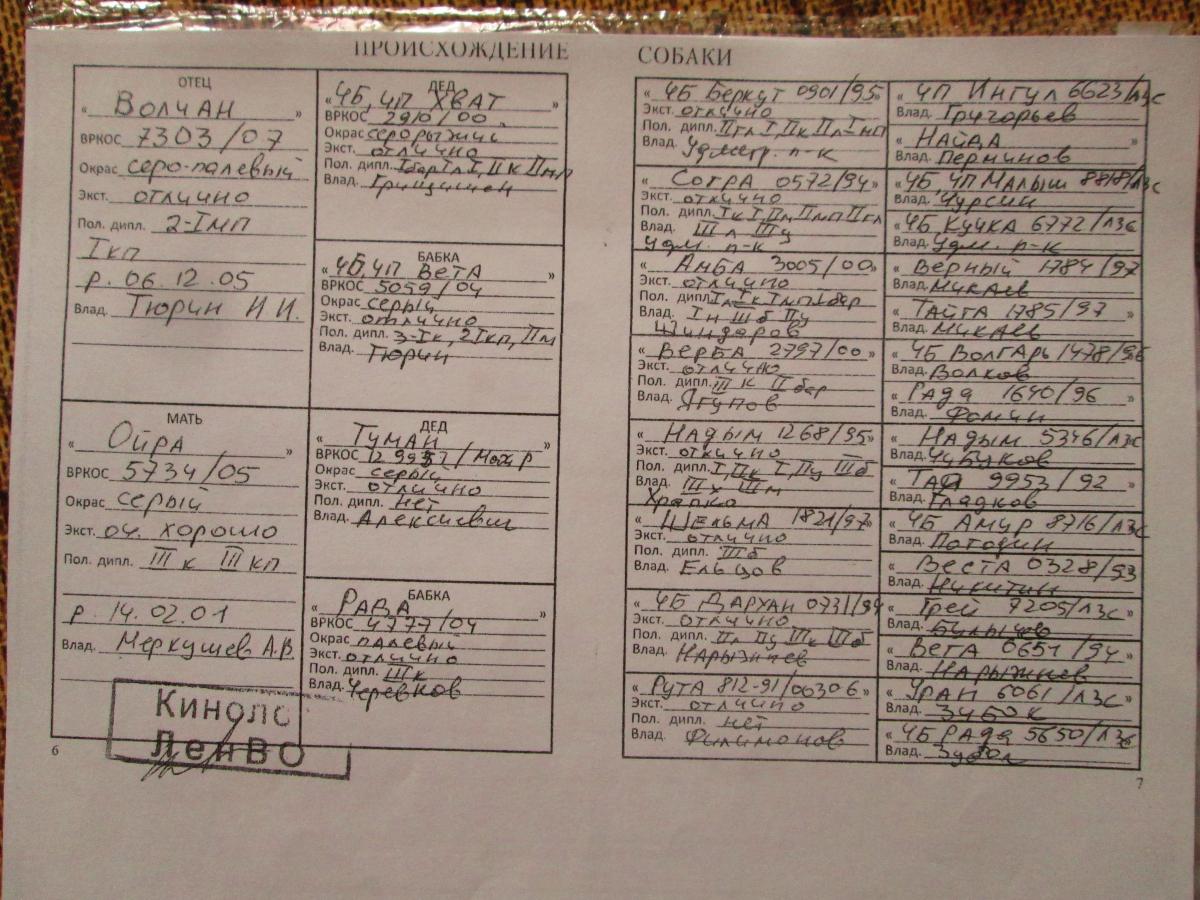 ПРОИСХОЖДЕНИЕ СОБАКИ
ОТЕЦ
« ВОЛЧАН »
ВРКОС 7303/07
Окрас серо-палевый
Экст. отлично
Пол. дипл. 2-Iмп
Iкп
р. 06.12.05
Влад. Тюрин И.И.
МАТЬ
« Ойра »
ВРКОС 5734/05
Окрас серый
Экст. оч. хорошо
Пол. дипл. III к III кп
р. 14.02.01
Влад. Меркушев А.В.
Киноло
ЛенВО
6
ДЕД
« ЧБ, ЧП ХВАТ »
ВРКОС 2910/00
Окрас серорыжий
Экст. отлично
Пол. дипл.
Влад.
БАБКА
« ЧБ, ЧП Вета »
ВРКОС 5059/04
Окрас серый
Экст. отлично
Пол. дипл. 3-Iк, 2Iкп, IIм
Влад. Тюрин
ДЕД
« Туман »
ВРКОС
Окрас серый
Экст. отлично
Пол. дипл. нет
Влад.
БАБКА
« РАДА »
ВРКОС 4777/04
Окрас палевый
Экст. отлично
Пол. дипл. III к
Влад. Черевков
« ЧБ Беркут 0901/95 »
Экст. отлично
Пол. дипл.
Влад.
Удмурт. п-к
« Согра 0572/94 »
Экст. отлично
Пол. дипл. Iк I, IIм IIмп IIгл
Влад. III л III у
Удм. п-к
« Амба 3005/00 »
Экст. отлично
Пол. дипл.
Влад. Iн IIIб IIу
« Верба 2797/00 »
Экст. отлично
Пол. дипл. III к II бар
Влад. Ягупов
« Надым 1268/95 »
Экст. отлично
Пол. дипл. I, IIк I, IIу IIIб
Влад. III у III м
Храпко
« Шельма 1821/97 »
Экст. отлично
Пол. дипл. IIIб
Влад. Ельцов
« ЧБ Дархан 0731/94 »
Экст. отлично
Пол. дипл. IIл IIу IIIк IIIб
Влад. Нарыжнев
« Рута 812-91/06306 »
Экст. отлично
Пол. дипл. нет
Влад. Филимонов
« ЧП Ингул 6623/ЛЗС
Влад. Григорьев
« НАЙДА »
Влад. Перминов
« ЧБ ЧП Малыш 8818/ЛЗС
Влад. Чурсин
« ЧБ Кучка 6772/ЛЗС
Влад. Удм. п-к
« Верный 1784/97
Влад. Микаев
« Тайга 1785/97 »
Влад. Микаев
« ЧБ Волгарь 1478/96
Влад. Волков
« Рада 1640/96 »
Влад. Фомин
« Надым 5346/ЛЗС
Влад. Чибуков
« 9953/92 »
Влад. Гладков
« ЧБ Амур 8716/ЛЗС
Влад. Погодин
« Веста 0328/93
Влад. Никитин
« Грей 7205/ЛЗС
Влад.
« Вега 0651/94 »
Влад. Нарыжнев
« Уран 6061/ЛЗС »
Влад. Зубок
« ЧБ Рада 5650/ЛЗС
Влад.
7